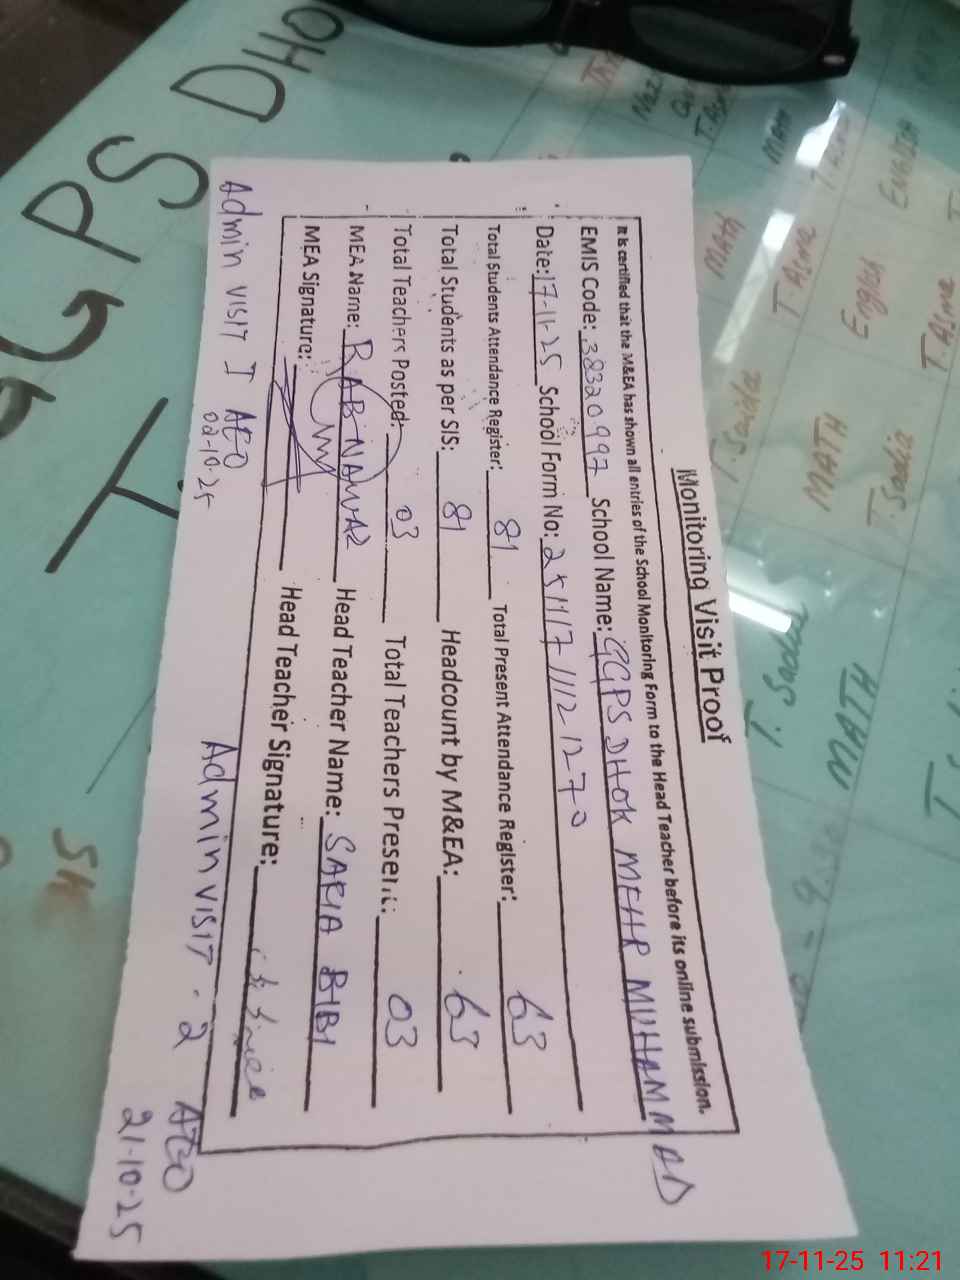 Monitoring Visit Proof
It is certified that the M&EA has shown all entries of the School Monitoring Form to the Head Teacher before its online submission.
EMIS Code: 38320992 School Name: GGPS DHOK MEHR MUHAMMAD
Date: 17-11-25 School Form No: 25111711121270
Total Students Attendance Register: 81 Total Present Attendance Register: 63
Total Students as per SIS: 81 Headcount by M&EA: 63
Total Teachers Posted: 03 Total Teachers Present: 03
MEA Name: RAB NAWAZ Head Teacher Name: SARIA BIBI
MEA Signature: Head Teacher Signature:
Admin visit I AEO
02-10-25
Admin visit - 2 AEO
21-10-25
GGPS DHO
T. Asma
MATH
English
T. Asma
MATH
English
T. Sadia
MATH
T. Sadia
MATH
17-11-25 11:21